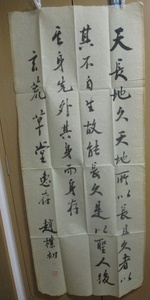 天長地久天地所以長且久者以
其不自生故能長久是以聖人後
其身先外其身而身存
草堂惠存 趙樸初